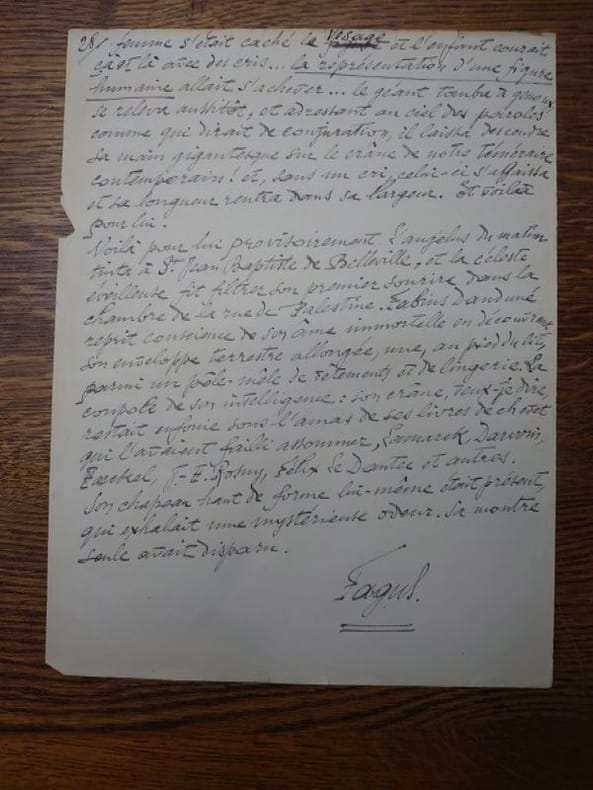 28/ femme s'était caché le Visage et l'enfant courait
çà et là avec des cris... la représentation d'une figure
humaine allait s'achever... le géant tomba à genoux
se releva aussitôt, et adressant au ciel des paroles
comme qui dirait de conjuration, il laissa descendre
sa main gigantesque sur le crâne de notre téméraire
contemporain! et, sans un cri, celui-ci s'affaissa
et sa longueur rentra dans sa largeur. Et voilà
pour lui.
Voilà pour lui provisoirement. L'angélus du matin
tinta à St Jean Baptiste de Belleville, et la céleste
éveilleuse fit filtrer son premier sourire dans la
chambre de la rue de Palestine. Fabius Dandumé
reprit conscience de son âme immortelle en découvrant
son enveloppe terrestre allongée, nue, au pied du lit,
parmi un pêle-mêle de vêtements et de lingerie. La
coupole de son intelligence : son crâne, veux-je dire,
restait enfouie sous l'amas de ses livres de chevet
qui l'avaient failli assommer, Lamarck, Darwin,
Haeckel, J.-H. Rosny, Félix Le Dantec et autres.
Son chapeau haut de forme lui-même était présent,
qui exhalait une mystérieuse odeur. Sa montre
seule avait disparu.
Fagus.